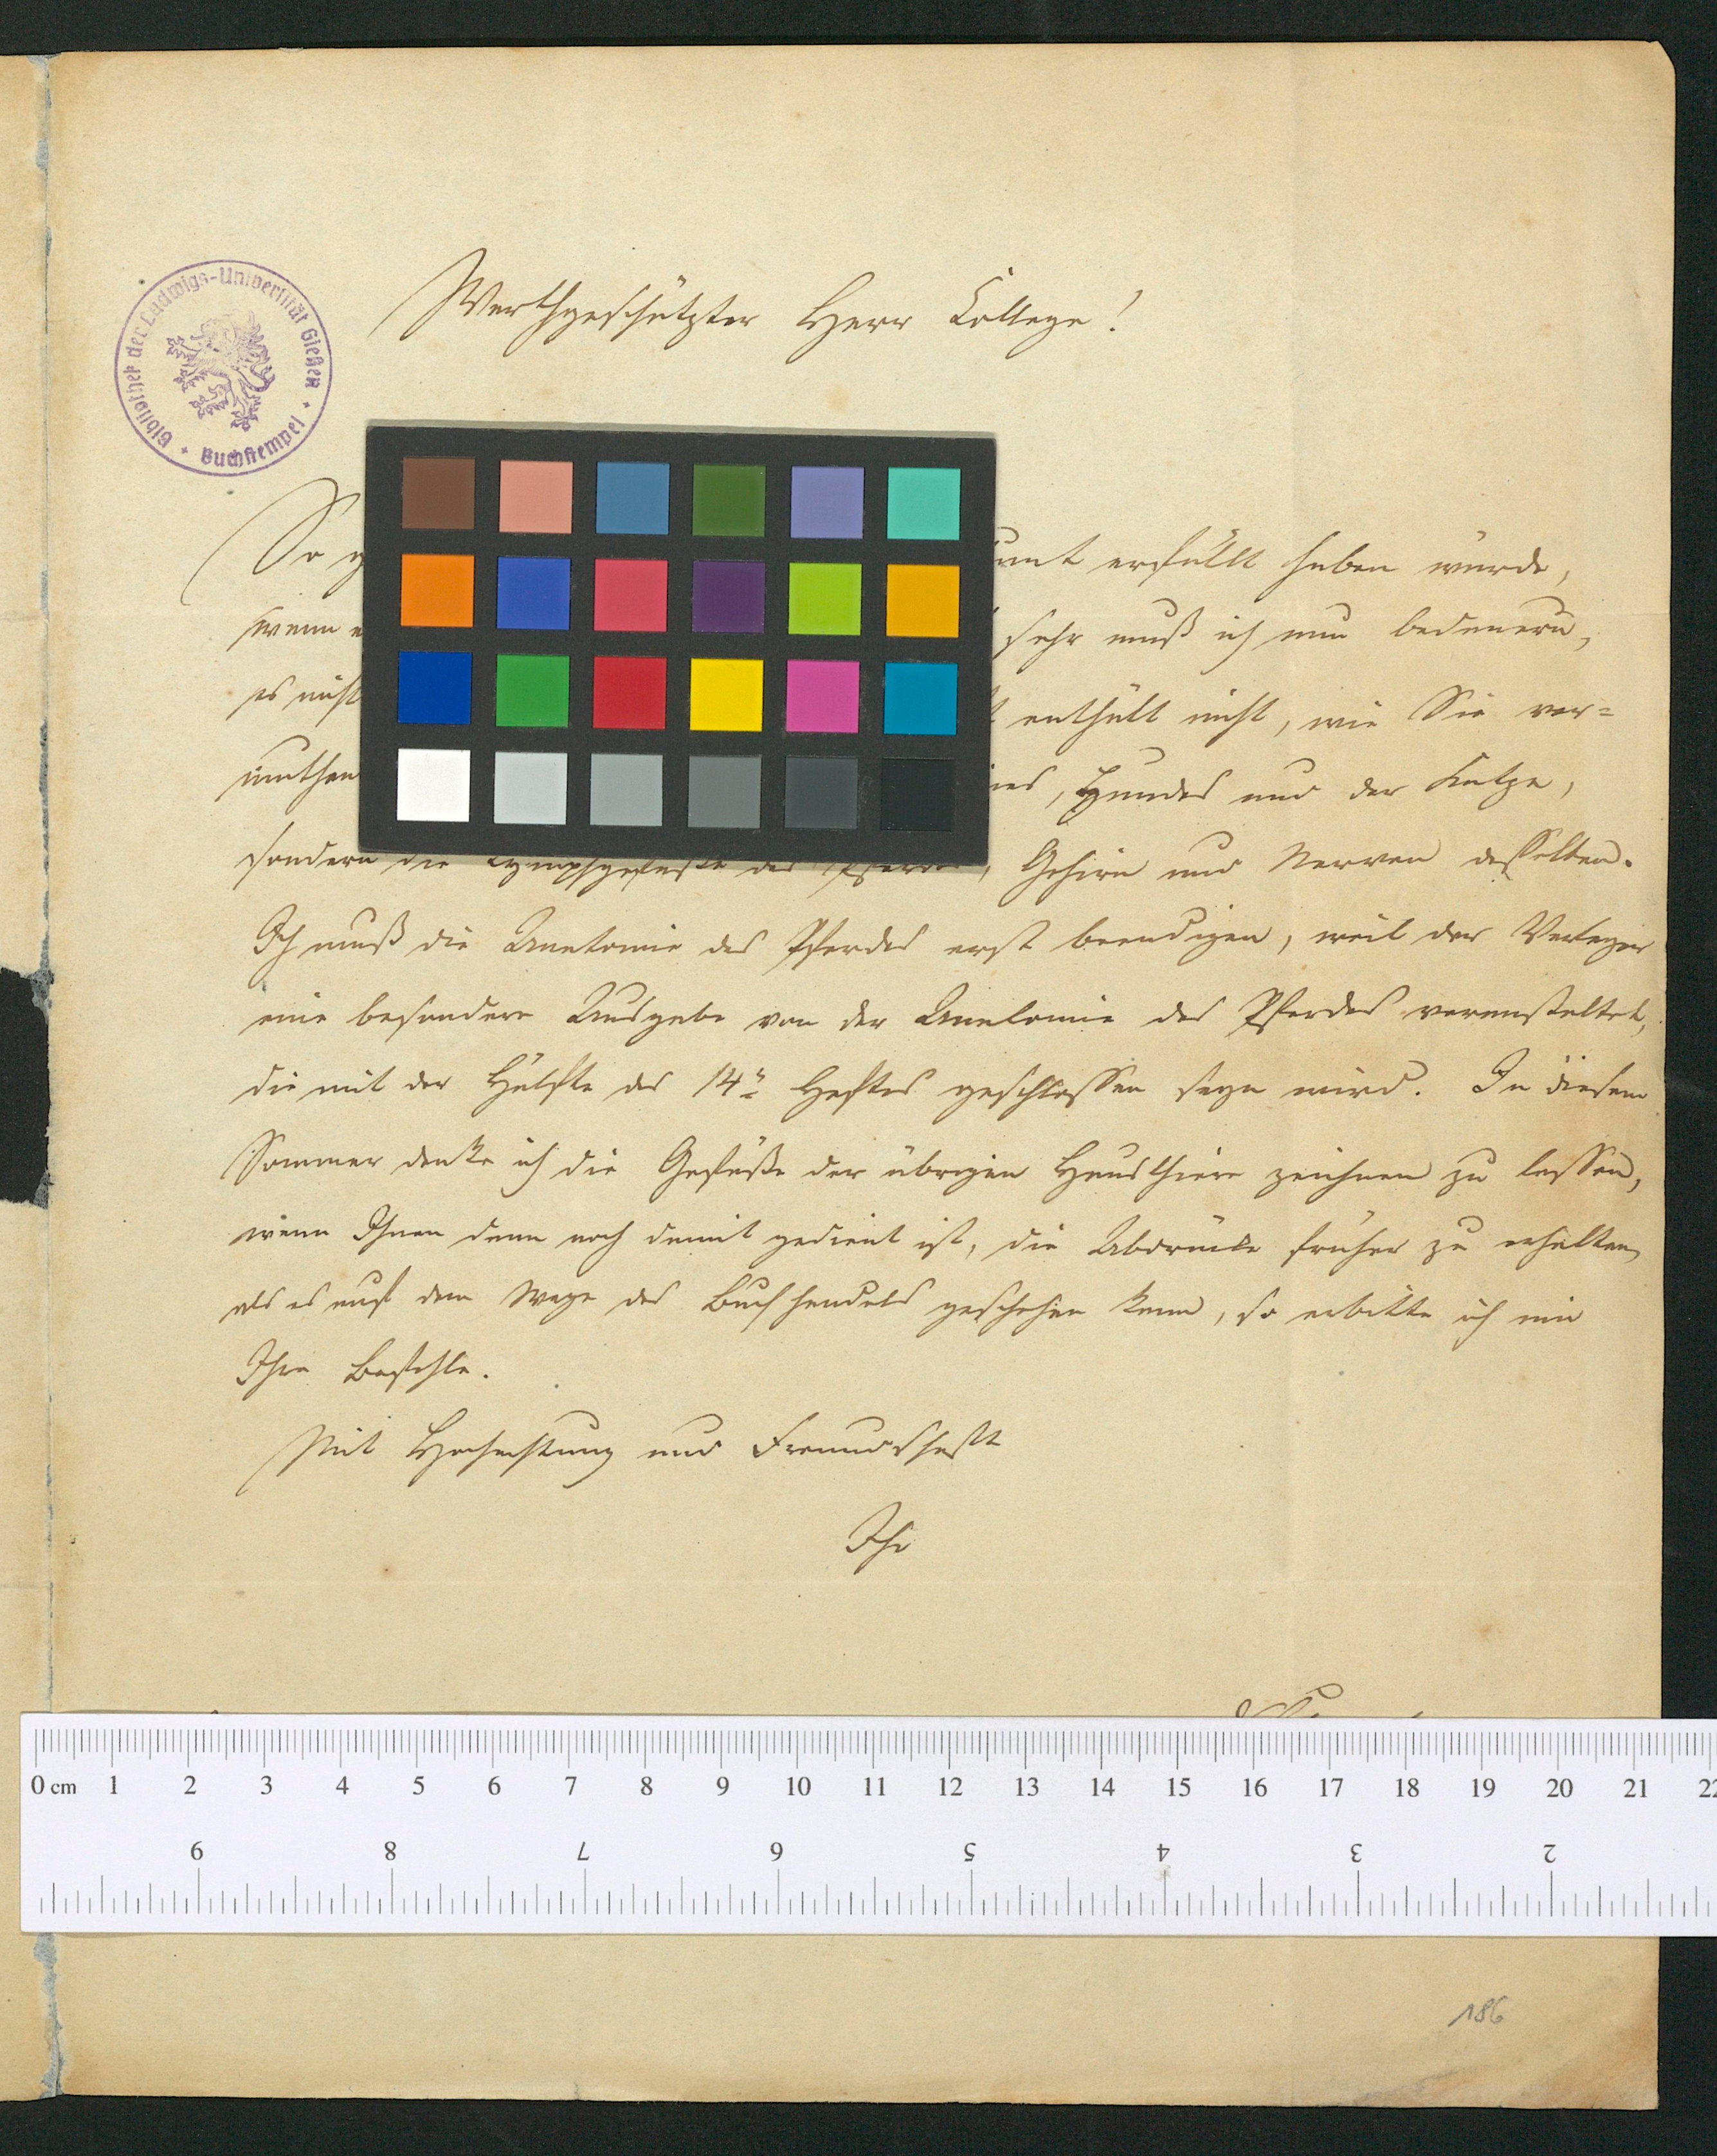 Bibliothek der Ludwigs-Universität Gießen
* Buchstempel *
Werthgeschätzter Herr College!
So
erfüllt haben würde,
wenn
sehr muß ich nun bedauern,
es nicht
enthält nicht, wie Sie ver-
muthen
, Hundes und der Katze,
sondern die Lymphgefäße des Pferdes, Gehirn und Nerven desselben.
Ich muß die Anatomie des Pferdes erst beendigen, weil der Verleger
eine besondere Ausgabe von der Anatomie des Pferdes veranstaltet,
die mit der Hälfte des 14n Heftes geschlossen seyn wird. In diesem
Sommer denke ich die Gefäße der übrigen Hausthiere zeichnen zu lassen,
wenn Ihnen dann noch damit gedient ist, die Abdrücke früher zu erhalten,
als es auf dem Wege des Buchhandels geschehen kann, so erbitte ich mir
Ihre Befehle.
Mit Hochachtung und Freundschaft
Ihr
0 cm 1 2 3 4 5 6 7 8 9 10 11 12 13 14 15 16 17 18 19 20 21 22
9 8 7 6 5 4 3 2
186